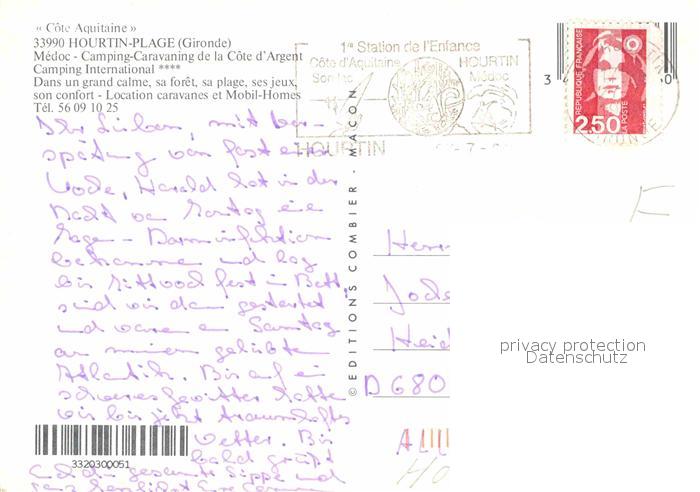 « Côte Aquitaine »
33990 HOURTIN-PLAGE (Gironde)
Médoc - Camping-Caravaning de la Côte d'Argent
Camping International ****
Dans un grand calme, sa forêt, sa plage, ses jeux,
son confort - Location caravanes et Mobil-Homes
Tél. 56 09 10 25
1re Station de l'Enfance
Côte d'Aquitaine HOURTIN
Son lac Médoc
HOURTIN
REPUBLIQUE FRANÇAISE
2,50
LA POSTE
Ihr Lieben, mit Ver-
spätung von fast einer
Woche, Harald hat in der
Nacht von Montag eine
Magen - Darminfektion
bekommen und lag
bis Mittwoch fest im Bett,
sind wir dann gestartet
und waren am Samstag
an meinem geliebten
Atlantik. Bis auf ein
schweres Gewitter hatten
wir bis jetzt traumhaftes
Wetter. Bis
bald grüßt
die gesamte Sippe und
ganz herzlichst Eure
© EDITIONS COMBIER - MACON
Herrn
Heid
D 680
ALL
privacy protection
Datenschutz
3320300051